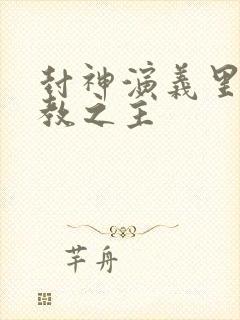 封神演義里
教之主
芊舟